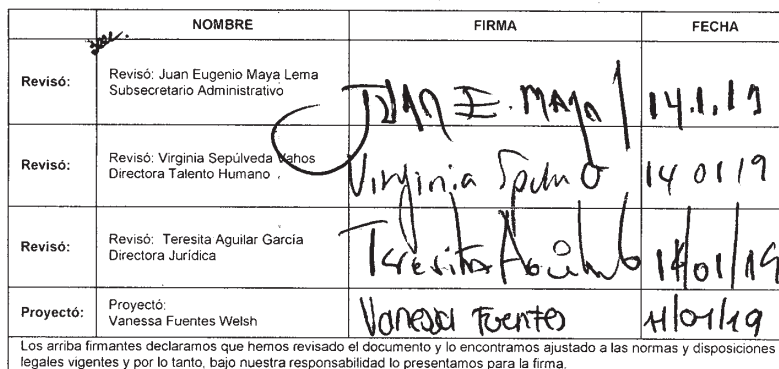 NOMBRE FIRMA FECHA
Revisó: Revisó: Juan Eugenio Maya Lema
Subsecretario Administrativo
JUAN E. MAYA 14.1.19
Revisó: Revisó: Virginia Sepúlveda Vahos
Directora Talento Humano
Virginia 14 01 19
Revisó: Revisó: Teresita Aguilar García
Directora Jurídica
Teresita 14/01/19
Proyectó: Proyectó:
Vanessa Fuentes Welsh
Vanessa Fuentes 11/01/19
Los arriba firmantes declaramos que hemos revisado el documento y lo encontramos ajustado a las normas y disposiciones
legales vigentes y por lo tanto, bajo nuestra responsabilidad lo presentamos para la firma.